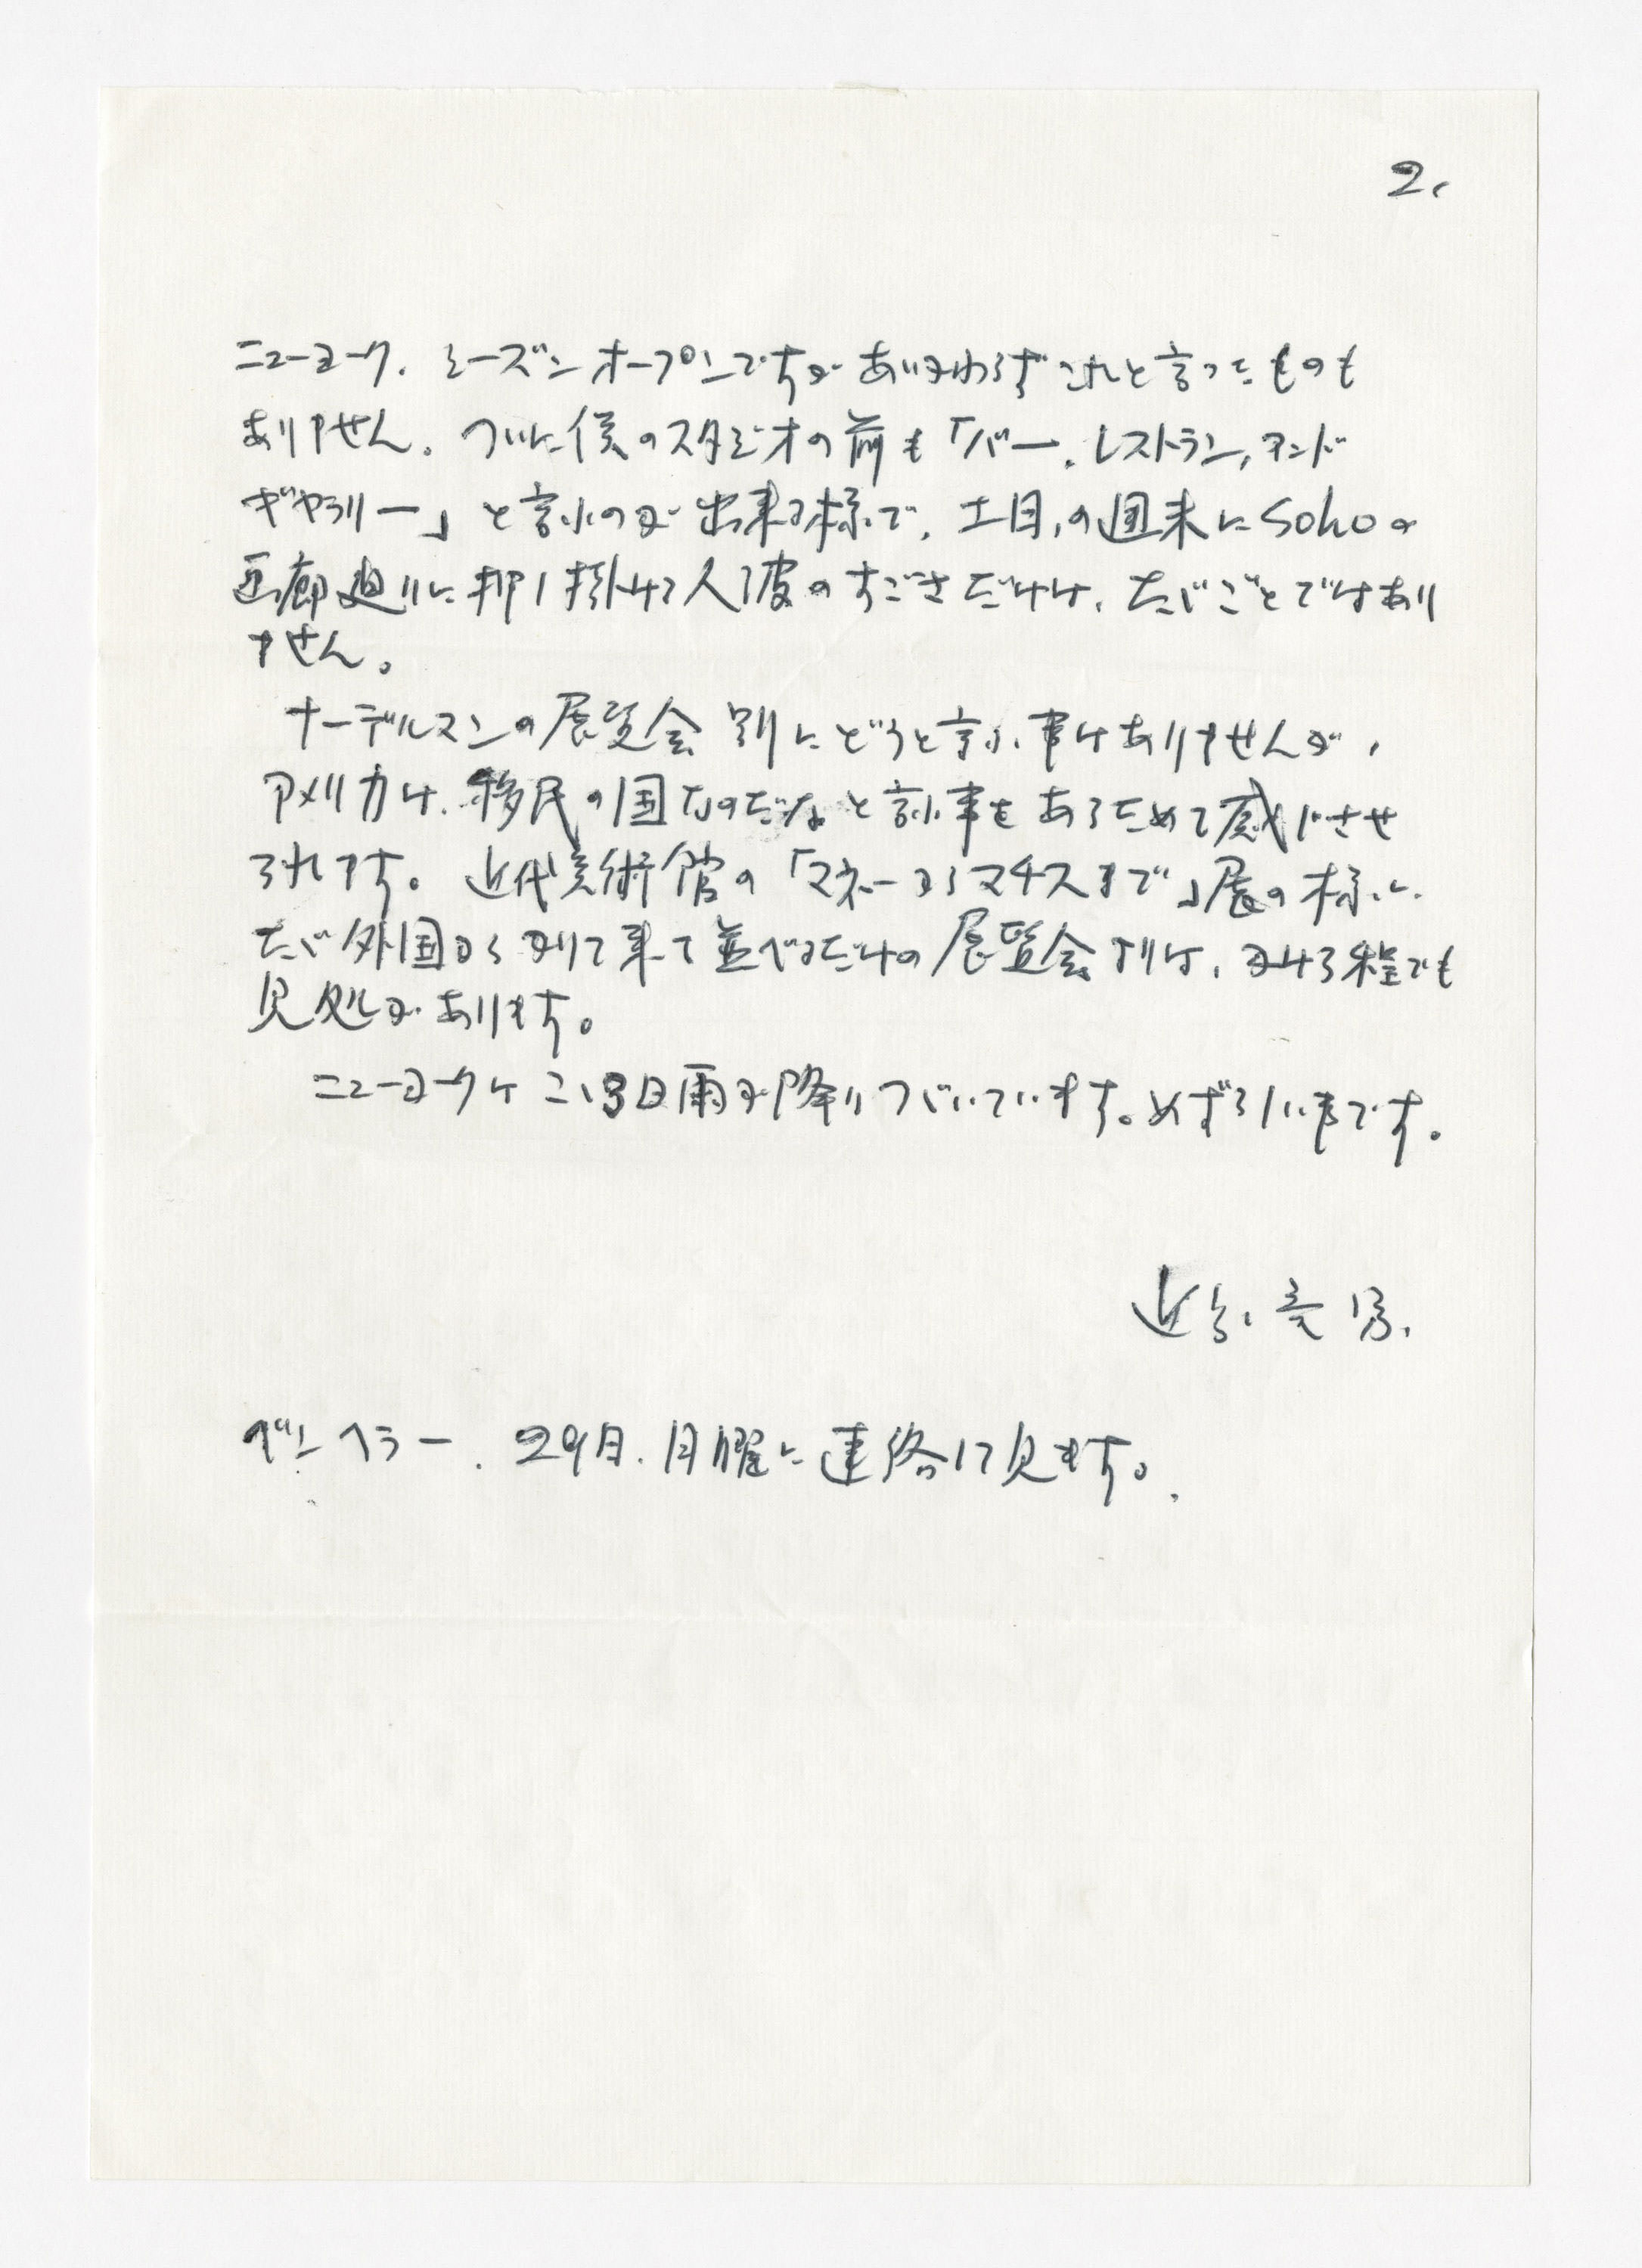 2.
ニューヨーク、シーズンオープンですがあいかわらずこれと言ったものも
ありません。ついに僕のスタジオの前も「バー、レストラン、アンド
ギャラリー」と言ふのが出来る様で、土日の週末にSohoの
画廊廻りに押し掛ける人波のすごさだけは、たゞごとではあり
ません。
ナーデルマンの展覧会別にどうと言ふ事はありませんが、
アメリカは、移民の国なのだなと言ふ事をあらためて感じさせ
られます。近代美術館の「マネーからマチスまで」展の様に、
たゞ外国から刈りて来て並べるだけの展覧会よりは、よほど
見処があります。
ニューヨークはこゝ3日雨が降りつゞいています。めずらしい事です。
近
29日、月曜に連絡して見ます。